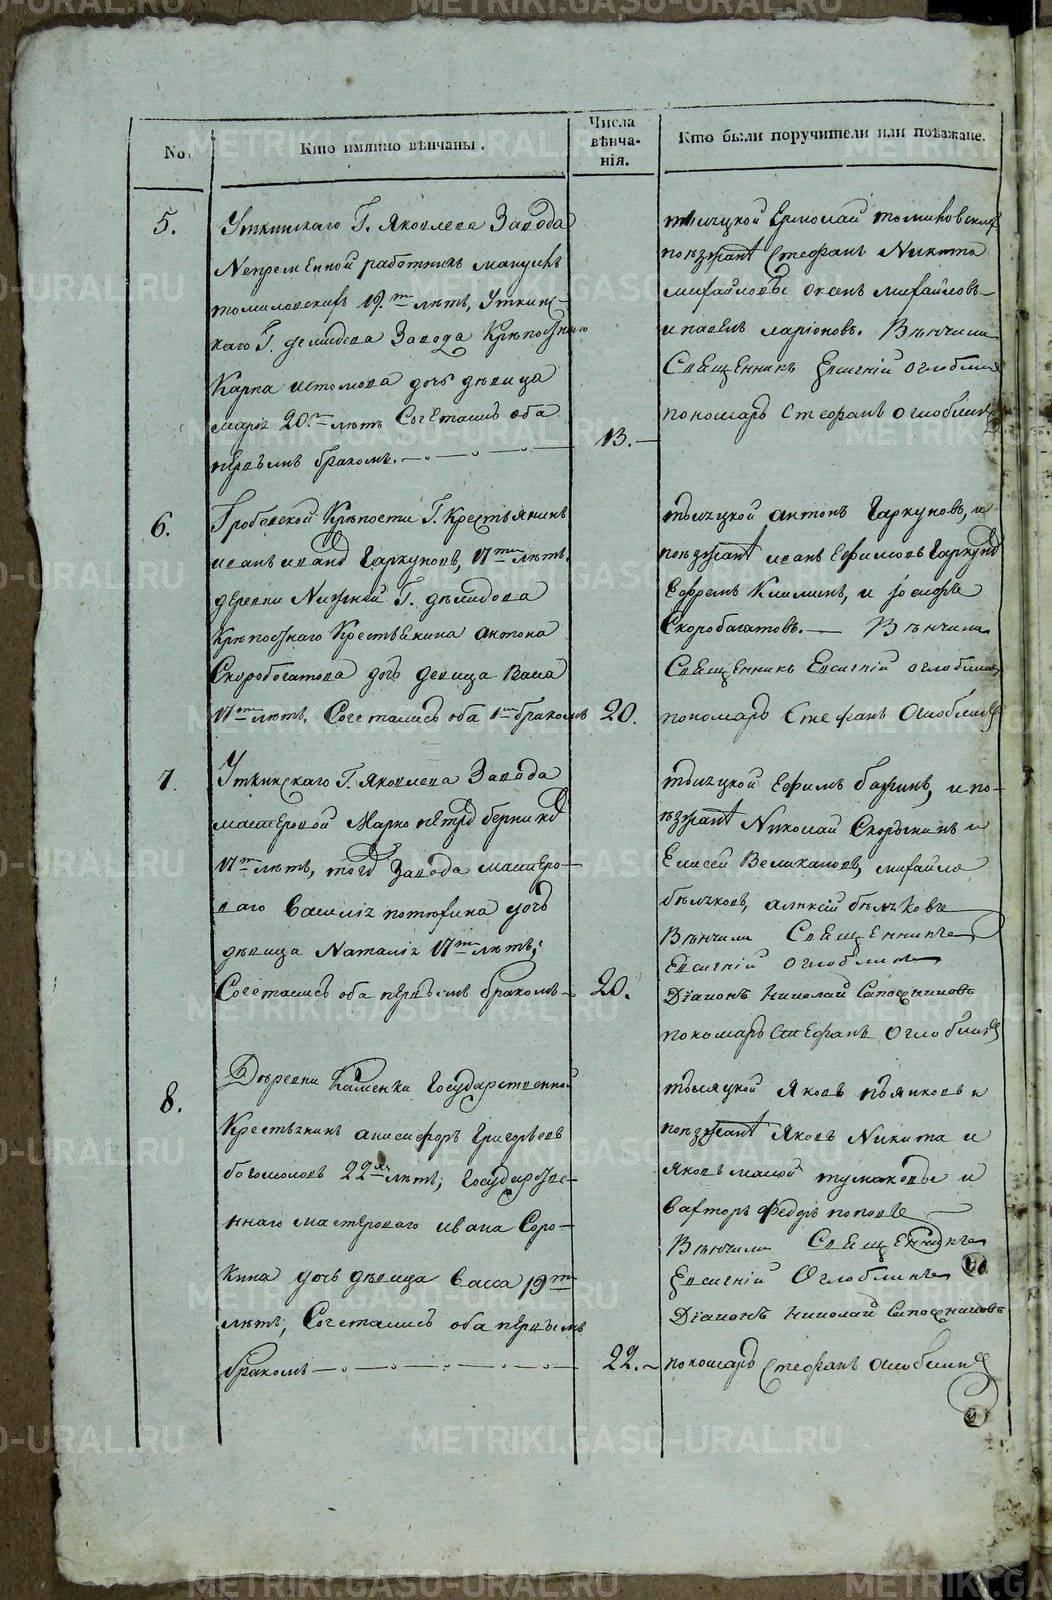 No.
Кто имянно вѣнчаны.
Числа
вѣнча-
нія.
Кто были поручители или поѣзжане.
5.
Уткинскаго Г. Яковлева Завода
Непременной работникъ
томиловскихъ 19.ти лѣтъ, Уткинс-
каго Г. демидова Завода Крѣпостнаго
Карпа истомова дочь дѣвица
маріѧ 20.ти лѣтъ Сочетались оба
первымъ бракомъ.
13.
тысяцкой Ермолай томиловскихъ
поѣзжанѣ Стефанъ Никита
михайловы михайловъ
и павелъ ларіоновъ. Вѣнчали
Священникъ Евсигній оглоблинъ
пономарь Стефанъ оглоблинъ
6.
Гробовской Крѣпости Г. Крестьянинъ
иванъ Гаркуновъ, 17ти лѣтъ.
деревни Нижней Г. дѣмидова
крѣпостнаго Крестьянина антона
Скоробогатова дочь девица Васа
17ти лѣтъ, Сочетались оба 1мъ бракомъ
20.
тысяцкой антонъ Гаркуновъ, и
поѣзжанѣ иванъ Ефимовъ Гаркуновъ
Ефремъ и јосифъ
Скоробогатовъ. Вѣнчали
Священникъ Евсигній оглоблинъ
пономарь Стефанъ Оглоблинъ
7.
Уткинскаго Г. Яковлева Завода
мастеровой Марко петровъ
17ти лѣтъ, тогожъ Завода мастеро-
ваго Василіѧ потюфина дочь
дѣвица Наталіѧ 17ти лѣтъ;
Сочетались оба первымъ бракомъ
20.
тысяцкой Ефимъ и по-
ѣзжанѣ Николай и
Елисей Великановъ, михайла
бѣлѧковъ, алѣксій бѣлѧковъ
Вѣнчали Священникъ
Евсигній оглоблинъ
Дїаконъ николай Сапожниковъ
пономарь Стефанъ Оглоблинъ
8.
Дѣревни Каменки Государственной
Крестьянинъ анисифоръ Григорьевъ
богомоловъ 22хъ лѣтъ; Государстве-
ннаго мастероваго ивана Соро-
кина дочь дѣвица Васса 19ти
лѣтъ; Сочетались оба первымъ
бракомъ
22.
тысяцкой Яковъ пьянковъ и
поѣзжанѣ Яковъ Никита и
Яковъ малой тумаковы и
Федоръ поповъ
Вѣнчали Священникъ
Евсигній Оглоблинъ
Дїаконъ николай Сапожниковъ
пономарь Стефанъ Оглоблинъ
METRIKI.GASO-URAL.RU